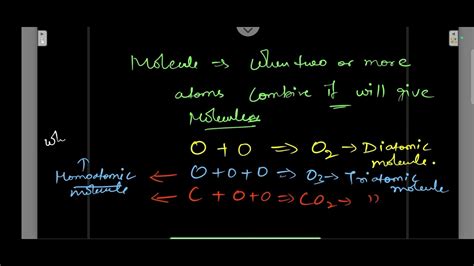 Molecule => When two or more
atoms combine it will give
Molecule
wh
O + O => O2 → Diatomic
molecule.
Homoatomic ← O + O + O => O3 → Triatomic
molecule molecule
← C + O + O => CO2 → "